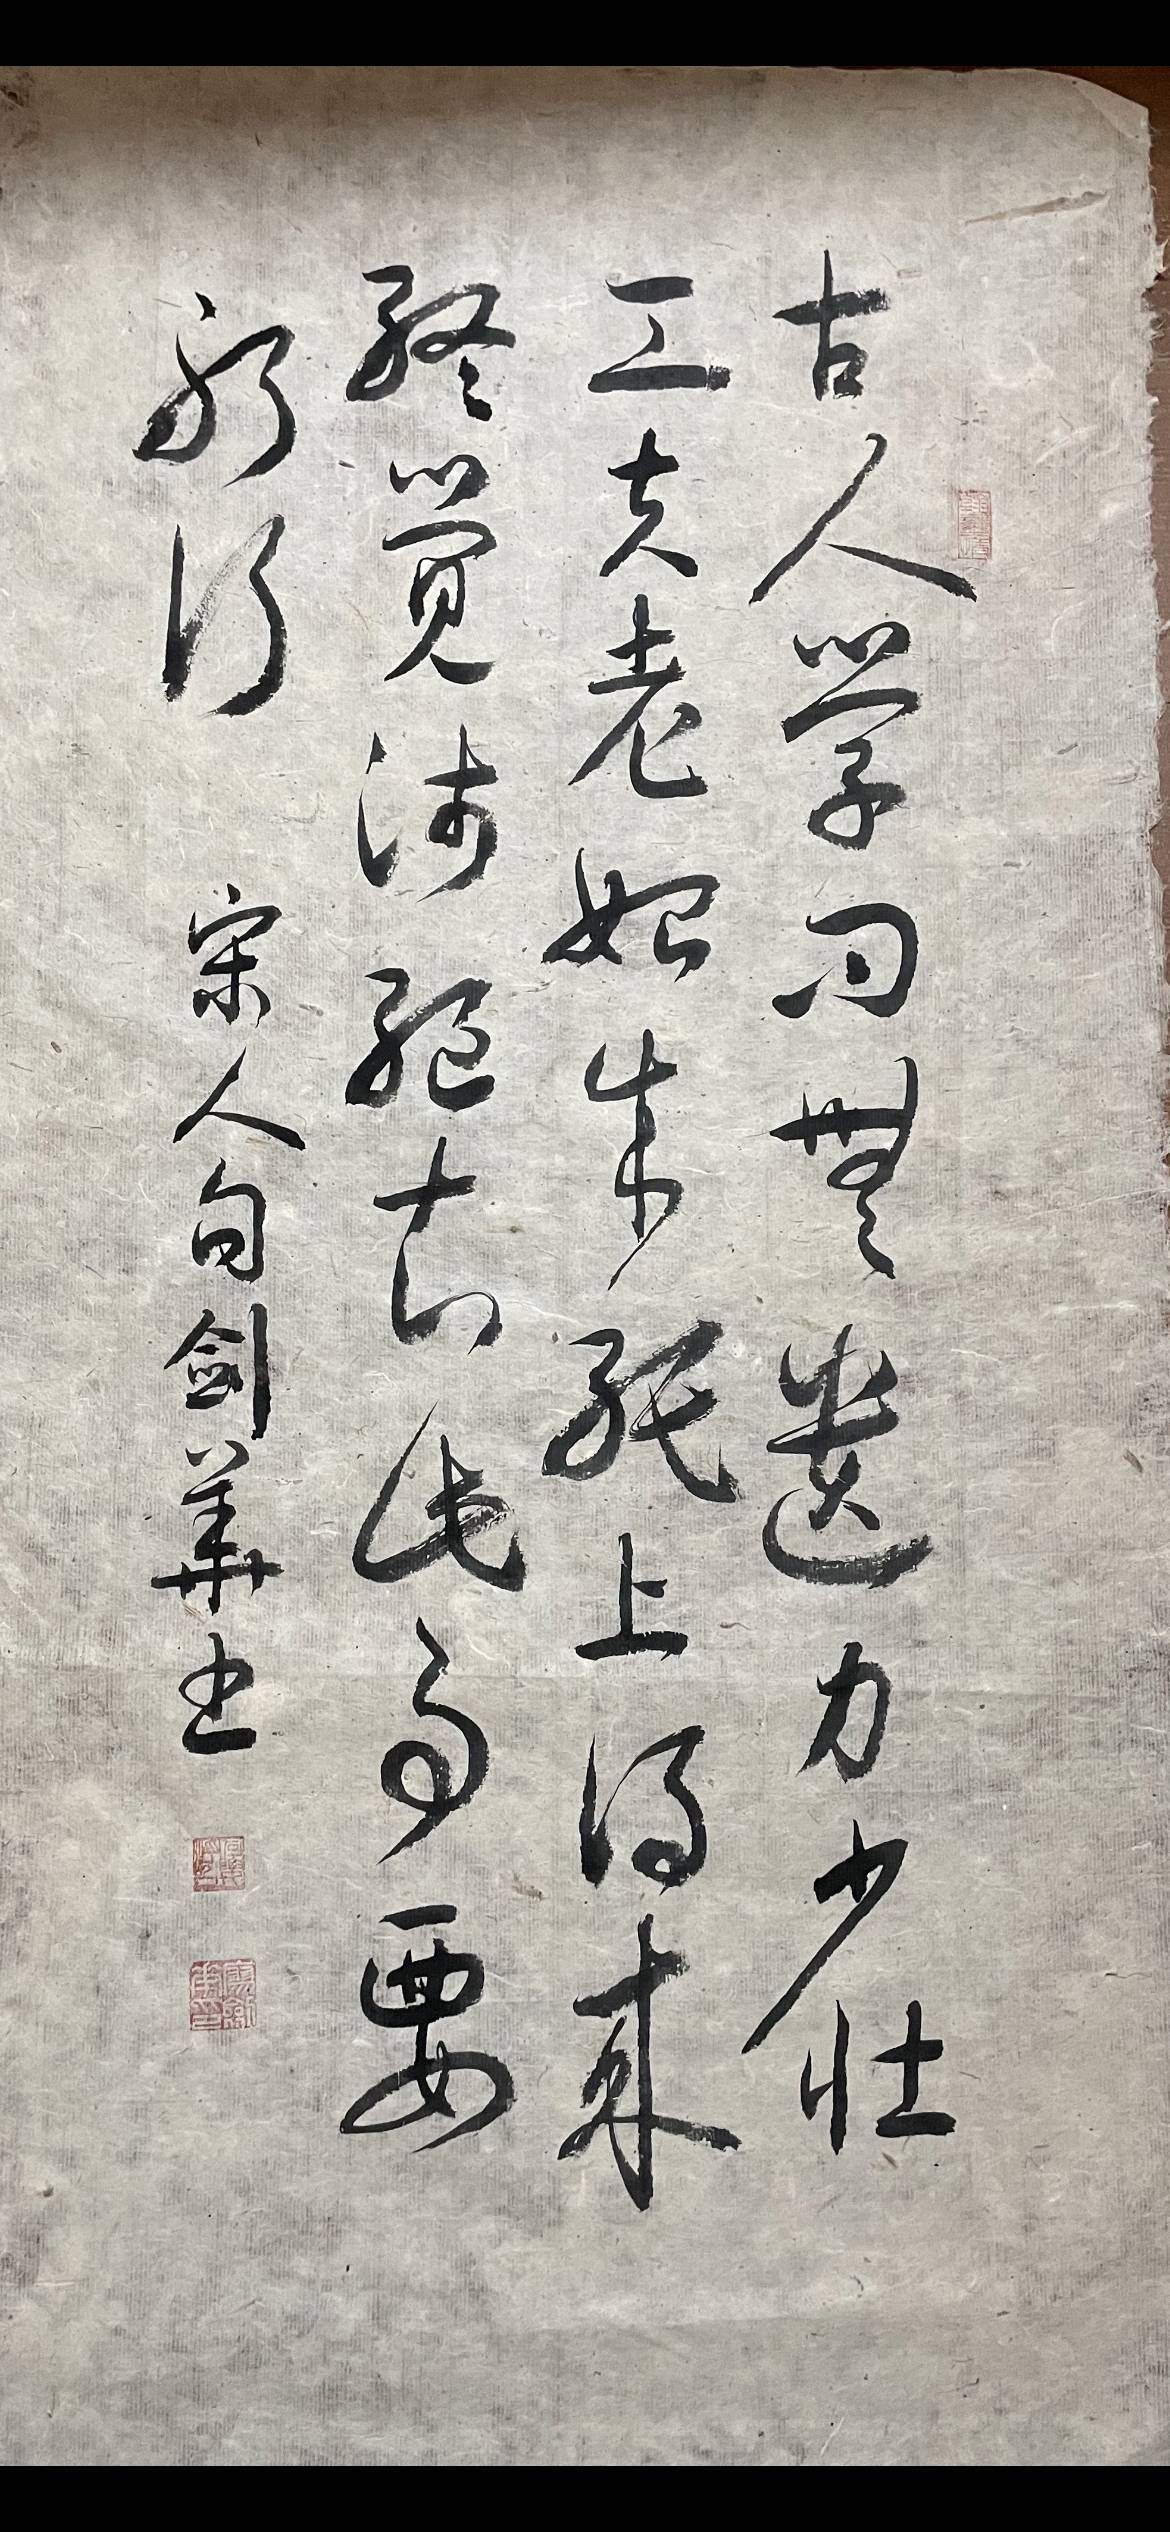 古人学问無遗力少壮
工夫老始成纸上得来
终觉浅绝知此事要
躬行 宋人句剑華书